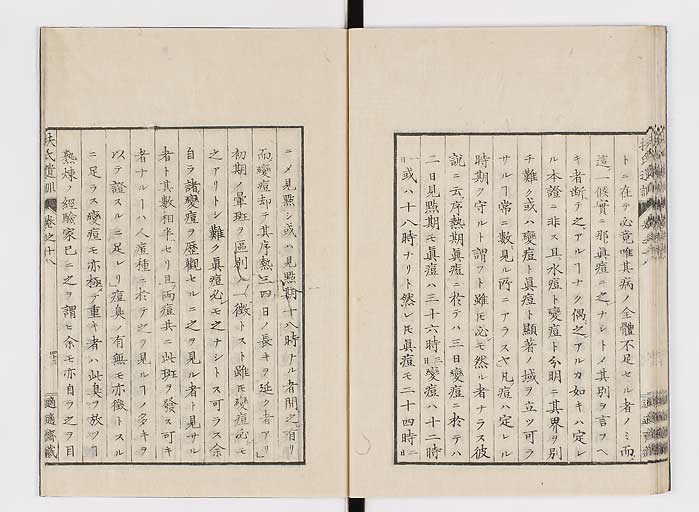 トニ在テ必竟唯其病ノ全體不足セル者ノミ而
這一候實ニ那眞痘ニ之ナシトメ其別ヲ言フヘ
キ者断テ之アルヿナク偶之アルカ如キハ定レ
ル本證ニ非ス且水痘ト變痘ト分明ニ其界ヲ別
チ難ク或ハ變痘ト眞痘ト顯著ノ域ヲ立ツ可ラ
サルヿ常ニ數見ル所ニアラスヤ凡痘ハ定レル
時期ヲ守ルト謂フト雖𪜈必モ然ル者ナラス彼
説ニ云序熱期眞痘ニ於テハ三日變痘ニ於テハ
二日見點期モ眞痘ハ三十六時三日變痘ハ十二時
一日或ハ十八時ナリト然レ𪜈眞痘モ二十四時二日
ニメ見點シ或ハ見點期十八時ナル者間之有リ
而變痘却テ其序熱三四日ノ長キヲ延ク者アリ
初期ノ暈斑ヲ區別ノ一徴トスト雖𪜈變痘必モ
之アリトシ難ク眞痘必モ之ナシトス可ラス余
自ラ諸變痘ヲ歴觀セルニ之ヲ見ル者ト見サル
者ト其數相半セリ且兩痘共ニ此斑ヲ發ス可キ
者ナルヿハ人痘種ニ於テ之ヲ見ルヿノ多キヲ
以テ證スルニ足レリ痘臭ノ有無モ亦徴トスル
ニ足ラス變痘モ亦極テ重キ者ハ此臭ヲ放ツヿ
熟煉ノ經驗家已ニ之ヲ謂ヒ余モ亦自ラ之ヲ目
扶氏遺訓 卷之十八
適適齋藏